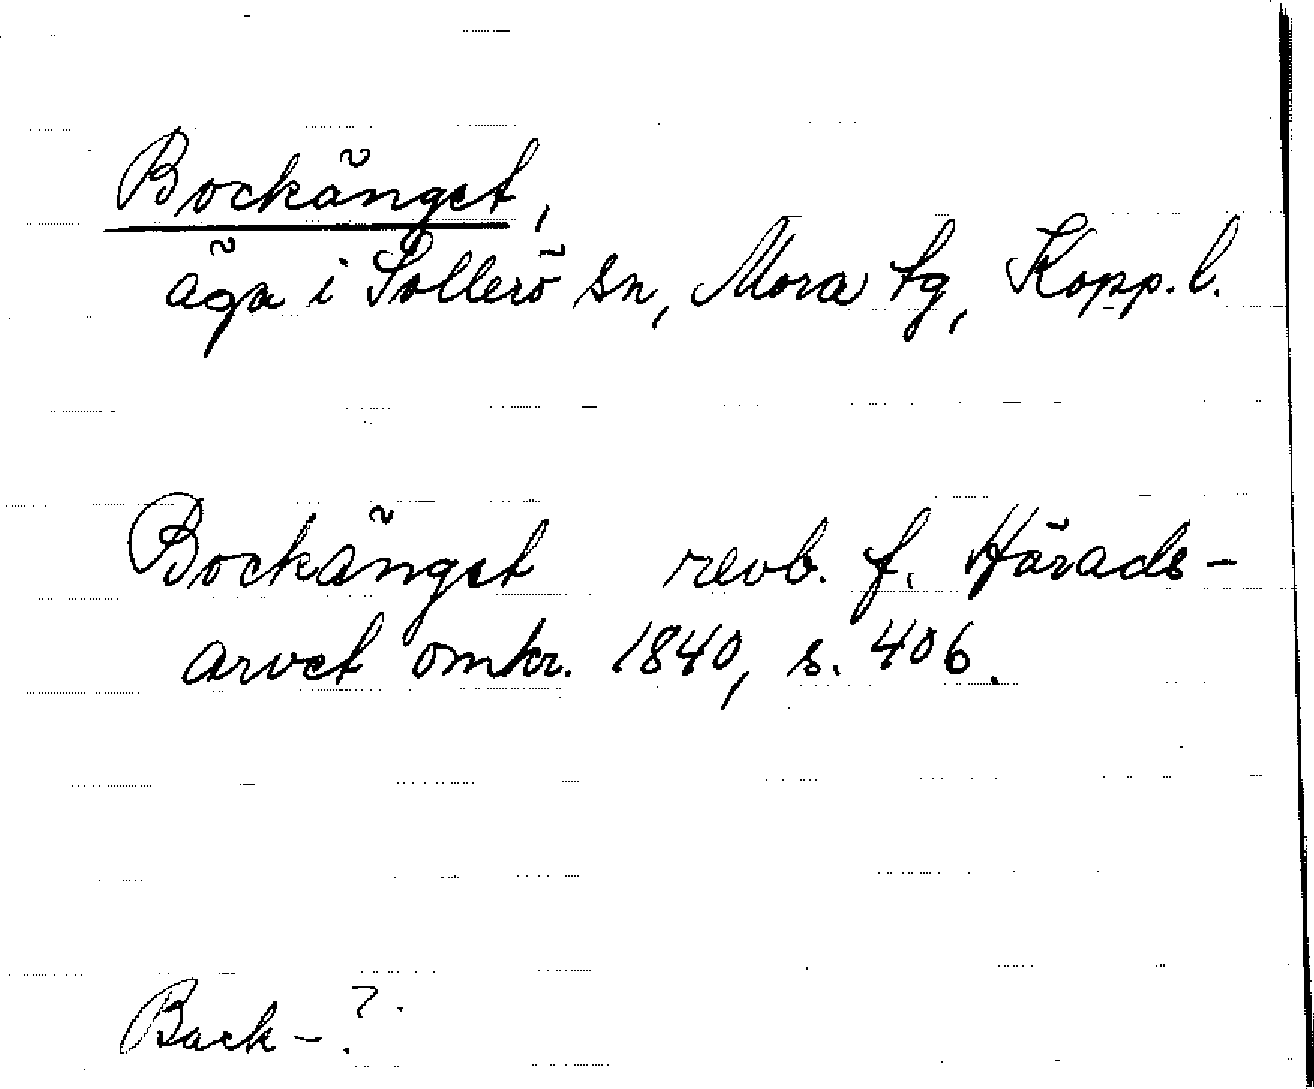 Bockänget,
äga i Sollerö sn, Mora tg, Kopp. l.
Bockänget revb. f. Härads-
arvet omkr. 1840, s. 406.
Back-?